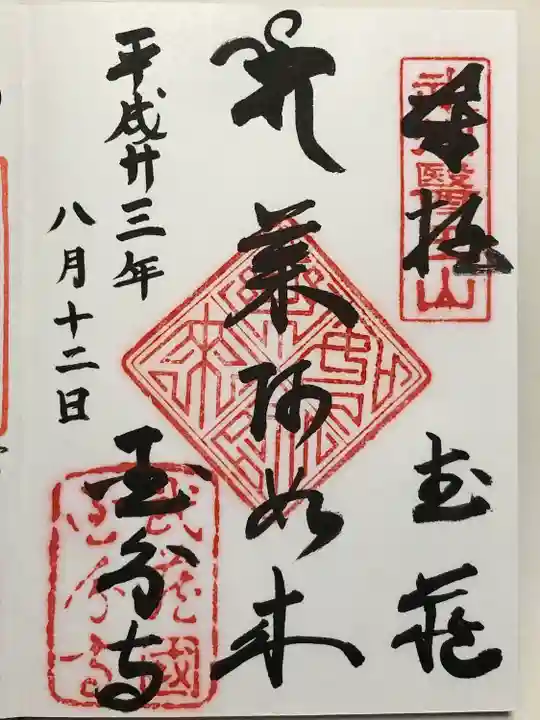 奉拝
武蔵
薬師如来
国分寺
平成廿三年
八月十二日
武蔵國
国分寺